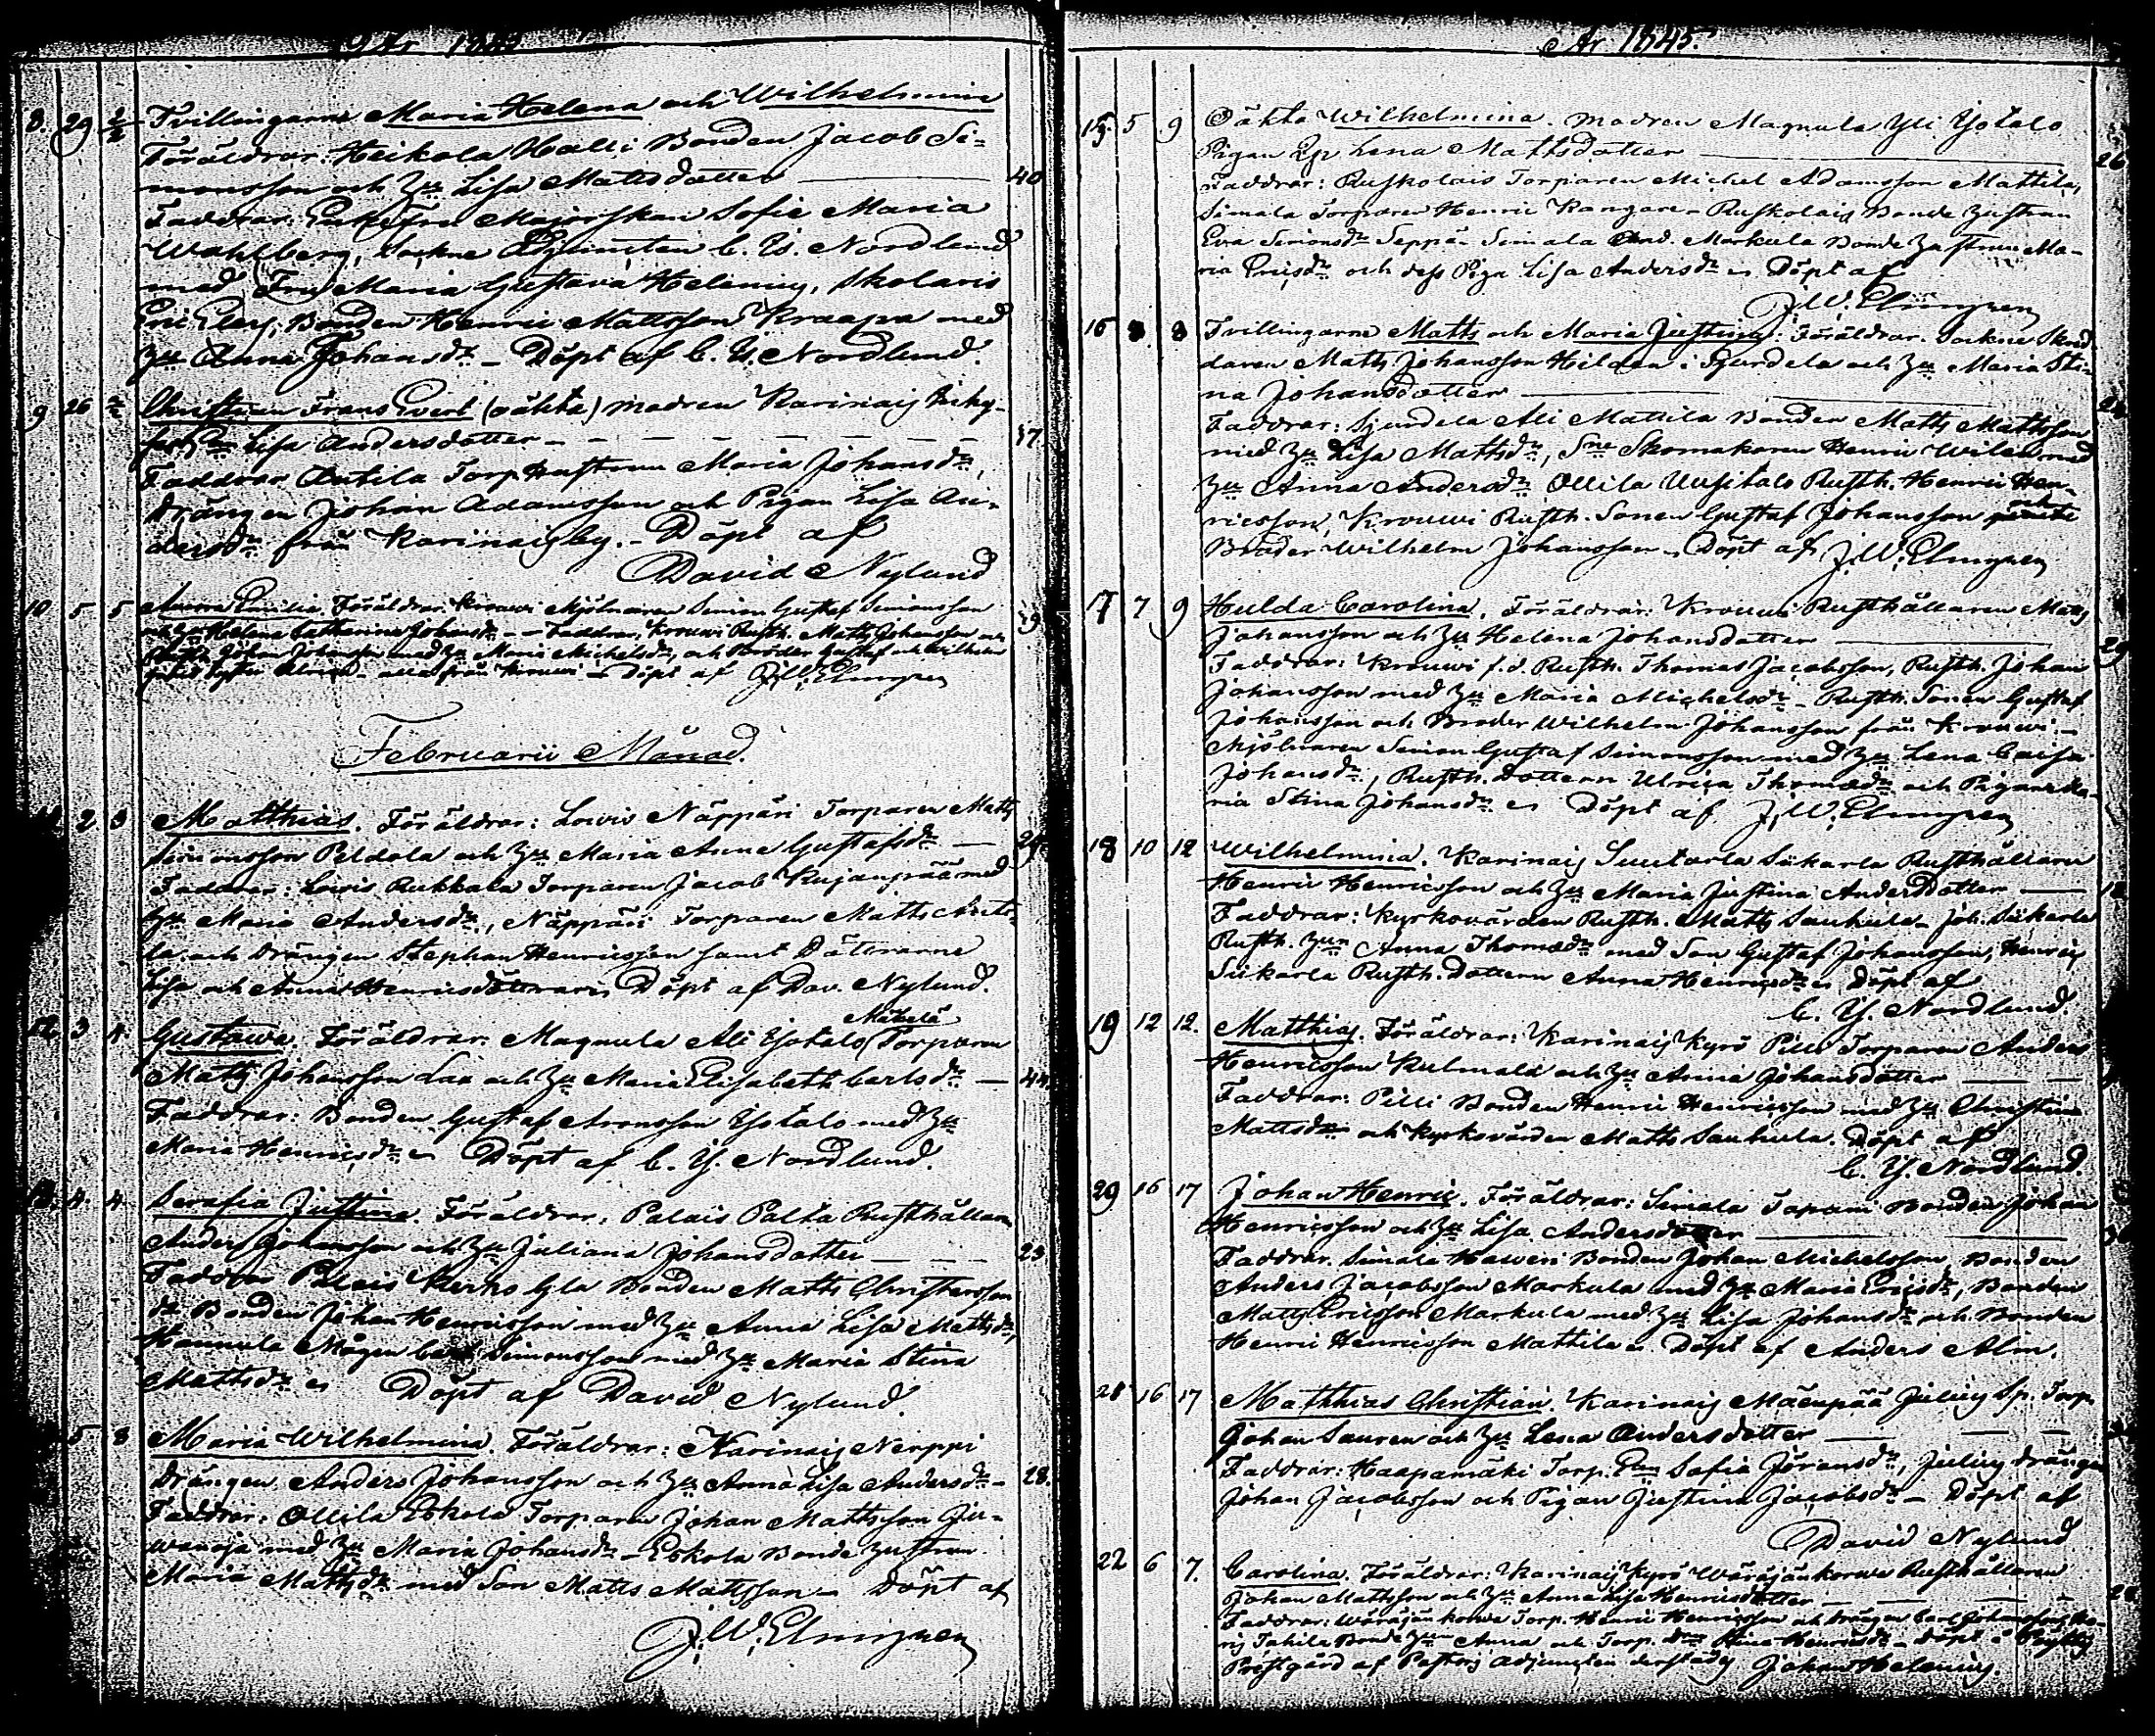 År 1845.
8. 29 2/2 Tvillingarne Maria Helena och Wilhelmina
Föräldrar: Heikola Halli Bonden Jacob Si-
monsson och Hu Lisa Mattsdotter 40
Faddrar: Enkefru Majorskan Sofie Maria
Wahlberg, Sockne Adjuncten C. Y. Nordlund
med Fru Maria Gustava Helenius, Skolaris
Eric Bonden Henric Mattsson Kraapa med
Hu Anna Johansdr – Döpt af C. Y. Nordlund.
9 26 Christian Frans Evert (oäkta) modren Karinais
Lisa Andersdotter – 37.
Faddrar Antila Torp Hustrun Maria Johansdr,
Drängen Johan Adamsson och Pigan Lisa An-
dersdr från Karinaisby. – Döpt af
David Nylund
10 5 5 Anna Emilia. Föräldrar: Krouwi Mjölnaren Simon Gustaf Simonsson
Helena Catharina Johansdr – Faddrar, Krouwi Rusth. Matts Johansson och
Johan Johansson med Hu Maria Michelsdr, och Bröder Gustaf och Wilhelm
alla från Krouwi – Döpt af J. W. Elmgren
Februarii Månad.
2 3 Matthias. Föräldrar: Lowis Näppäri Torparen Matts
Simonsson Peldola och Hu Maria Anna Gustafsdr – 29
Faddrar: Lowis Rukkala Torparen Jacob Kujanpää med
Hu Maria Andersdr, Näppäri Torparen Matts Anto-
la och Drängen Stephan Henricsson samt Döttrarne
Lisa och Anna Henricsdöttrar Döpt af Dav. Nylund.
12. 3 4 Gustawa. Föräldrar: Magnula Ali Isotalo Mäkelä Torparen
Matts Johansson Laa och Hu Maria Elisabeth Carlsdr – 44
Faddrar: Bonden Gustaf Aronsson Isotalo med Hu
Maria Henricsdr Döpt af C. Y. Nordlund.
13. 4. 4 Serafia Justina. Föräldrar: Palais Palta Rusthållaren
Anders Johansson och Hu Juliana Johansdotter 23
Faddrar Palais Kerho Yla Bonden Matts Christersson
dr Bonden Johan Henricsson med Hu Anna Lisa Mattsdr,
Hannula Mågen Carl Simonsson med Hu Maria Stina
Mattsdr Döpt af David Nylund
5 8 Maria Wilhelmina. Föräldrar: Karinais Nerppi
Drängen Anders Johansson och Hu Anna Lisa Andersdr – 28.
Faddrar: Ollila Eskola Torparen Johan Mattsson Ju-
wanoja med Hu Maria Johansdr – Eskola Bonde Hustrun
Maria Mattsdr med Son Matts Mattsson – Döpt af
J. W. Elmgren
År 1845.
15. 5 9 Oäkta Wilhelmina. modren Magnula Yli Isotalo
Pigan Lena Mattsdotter 26
Faddrar: Ruskolais Torparen Michel Adamsson Mattila,
Simala Torparen Henric Kangare – Ruskolais Bonde Hustrun
Eva Simonsdr Seppä – Simala Markula Bonde Hustrun Ma-
ria Ericsdr och dess Piga Lisa Andersdr Döpt af
J. W. Elmgren
16 8 8 Tvillingarne Matts och Maria Justina. Föräldrar: Sockne Skräd-
daren Matts Johansson Hilden i Gjurdela och Hu Maria Sti-
na Johansdotter 24
Faddrar: Sjurdela Ali Mattila Bonden Matts Mattsson
med Hu Lisa Mattsdr, Sne Skomakaren Henric Wilen med
Hu Anna Andersdr Ollila Uusitalo Rusth. Henric Hen-
ricsson, Krouwi Rusth. Sonen Gustaf Johansson och
Broder Wilhelm Johansson – Döpt af J. W. Elmgren
17 7 9 Hulda Carolina. Föräldrar: Krouwi Rusthållaren Matts
Johansson och Hu Helena Johansdotter 29
Faddrar: Krouwi f.d. Rusth. Thomas Jacobsson, Rusth. Johan
Johansson med Hu Maria Michelsdr – Rusth. Sonen Gustaf
Johansson och Broder Wilhelm Johansson från Krouwi –
Mjölnaren Simon Gustaf Simonsson med Hu Lena Caisa
Johansdr, Rusth. Dottern Ulrica Thomædr och Pigan Ma-
ria Stina Johansdr Döpt af J. W. Elmgren
18 10 12 Wilhelmina. Karinais Suutarla Sikarla Rusthållaren
Henric Henricsson och Hu Maria Justina Andersdotter 18
Faddrar: Kyrkovärden Rusth. Matts Sauhula – Joh. Sikarla
Rusth. Hun Anna Thomædr med Son Gustaf Johansson, Henric
Sikarla Rusth. Dottern Anna Henricsdr Döpt af
C. Y. Nordlund.
19 12 12. Matthias. Föräldrar: Karinais Kyrö Pilli Torparen Anders
Henricsson Kulmala och Hu Anna Johansdotter
Faddrar: Pilli Bonden Henric Henricsson med Hu Christina
Mattsdr och Kyrkovärden Matts Sauhula. Döpt af
C. Y. Nordlund
20 16 17 Johan Henric. Föräldrar: Simala Tapani Bonden Johan
Henricsson och Hu Lisa Andersdotter
Faddrar: Simala Haweri Bonden Johan Michelsson, Bonden
Anders Jacobsson Markula med Hu Maria Ericsdr, Bonden
Matts Ericsson Markula med Hu Lisa Johansdr och Bonden
Henric Henricsson Mattila Döpt af Anders Alm.
21 16 17 Matthias Christian. Karinais Mäenpää Julius Sp. Torp.
Johan Sauren och Hu Lena Andersdotter
Faddrar: Haapamäki Torp. Sofia Göransdr, Julius Drängen
Johan Jacobsson och Pigan Justina Jacobsdr – Döpt af
David Nylund
22 6 7. Carolina. Föräldrar: Karinais Kyrö Wäräjänkorwa Rusthållaren
Johan Mattsson och Hu Anna Lisa Henricsdotter
Faddrar: Wäräjänkorwa Torp. Henric Henricsson och Drängen Carl Johansson,
Tahila Bonde Hun Anna och Torp. Stina Henricsdr – Döpt i Pöytis
Prestgård af Pastors Adjuncten derstädes Johan Helenius.